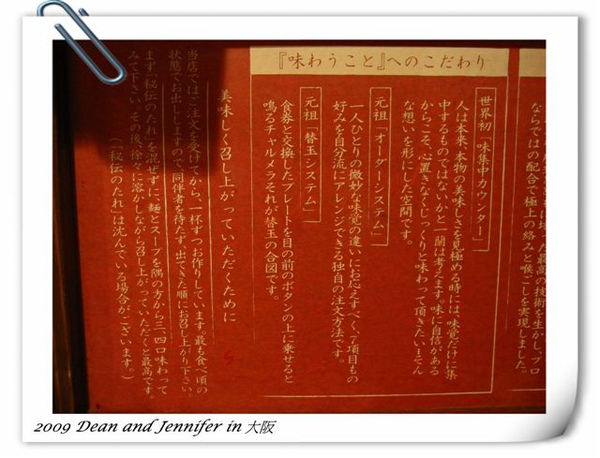 『味わうこと』へのこだわり
ならではの配分で極上の絡みと喉ごしを実現しました。
世界初「味集中カウンター」
人は本来、本物の美味しさを見極める時には、味覚だけに集
中するものではないかと一蘭は考えます。味に自信がある
からこそ、心置きなくじっくりと味わって頂きたい！そん
な想いを形にした空間です。
元祖「オーダーシステム」
一人ひとりの微妙な味覚の違いにお応えすべく、7項目もの
好みを自分流にアレンジできる独自の注文方法です。
元祖「替玉システム」
食券と交換したプレートを目の前のボタンの上に乗せると
鳴るチャルメラそれが替玉の合図です。
美味しく召し上がっていただくために
当店ではご注文を受けてから、一杯ずつお作りしています。最も食べ頃の
状態でお出ししますので、同伴者を待たず、出てきた順にお召し上がり下さい。
まず「秘伝のたれ」を混ぜずに、麺とスープを隅の方から三、四口味わって
みて下さい。その後、徐々に溶かしながら召し上がっていただくと最高です。
（「秘伝のたれ」は沈んでいる場合がございます。）
2009 Dean and Jennifer in 大阪